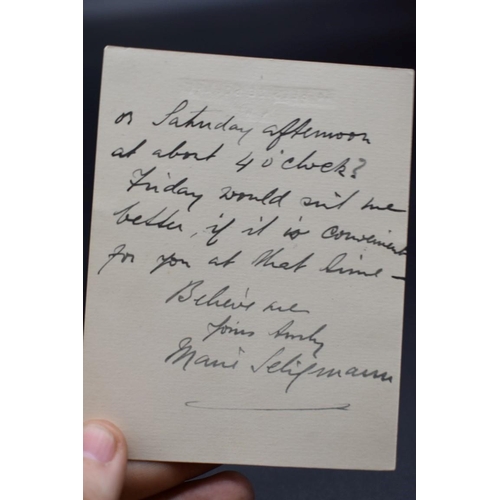 or Saturday afternoon
at about 4 o'clock?
Friday would suit me
better, if it is convenient
for you at that time –
Believe me
Yours truly
Marie Seligmann